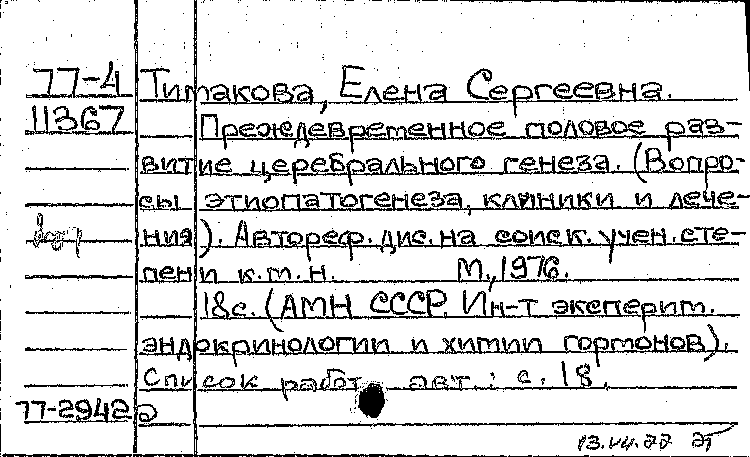 77-4 Тимакова, Елена Сергеевна.
11367 Преждевременное половое раз-
витие церебрального генеза. (Вопро-
сы этиопатогенеза, клиники и лече-
ния). Автореф. дис. на соиск. учен. сте-
пени к.м.н. М., 1976.
18с. (АМН СССР. Ин-т эксперим.
эндокринологии и химии гормонов).
Список работ авт.: с. 18.
77-2942а